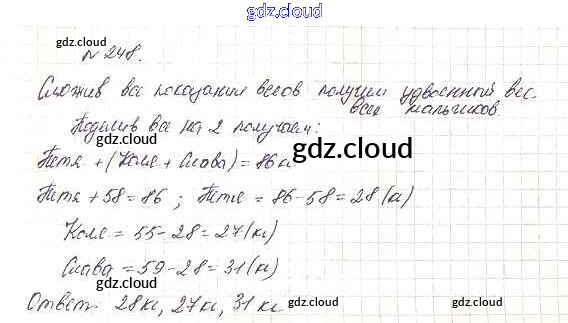 gdz.cloud
gdz.cloud
gdz.cloud
№ 248.
Сложив все показания весов получим удвоенный вес
всех мальчиков.
Поделив все на 2 получаем:
gdz.cloud
gdz.cloud
Петя + (Коля + Слава) = 86 кг
gdz.cloud
Петя + 58 = 86 ; Петя = 86 - 58 = 28 (кг)
Коля = 55 - 28 = 27 (кг)
Слава = 59 - 28 = 31 (кг)
gdz.cloud
Ответ: 28 кг, 27 кг, 31 кг
gdz.cloud
gdz.cloud